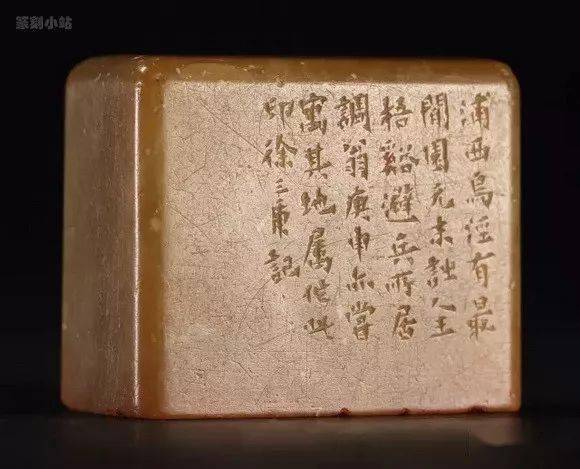 篆刻小站
浦西烏涇有最
閒園元末詩人王
梧谿避兵所居
調翁庚申亦嘗
寓其地屬作此
印徐三庚記